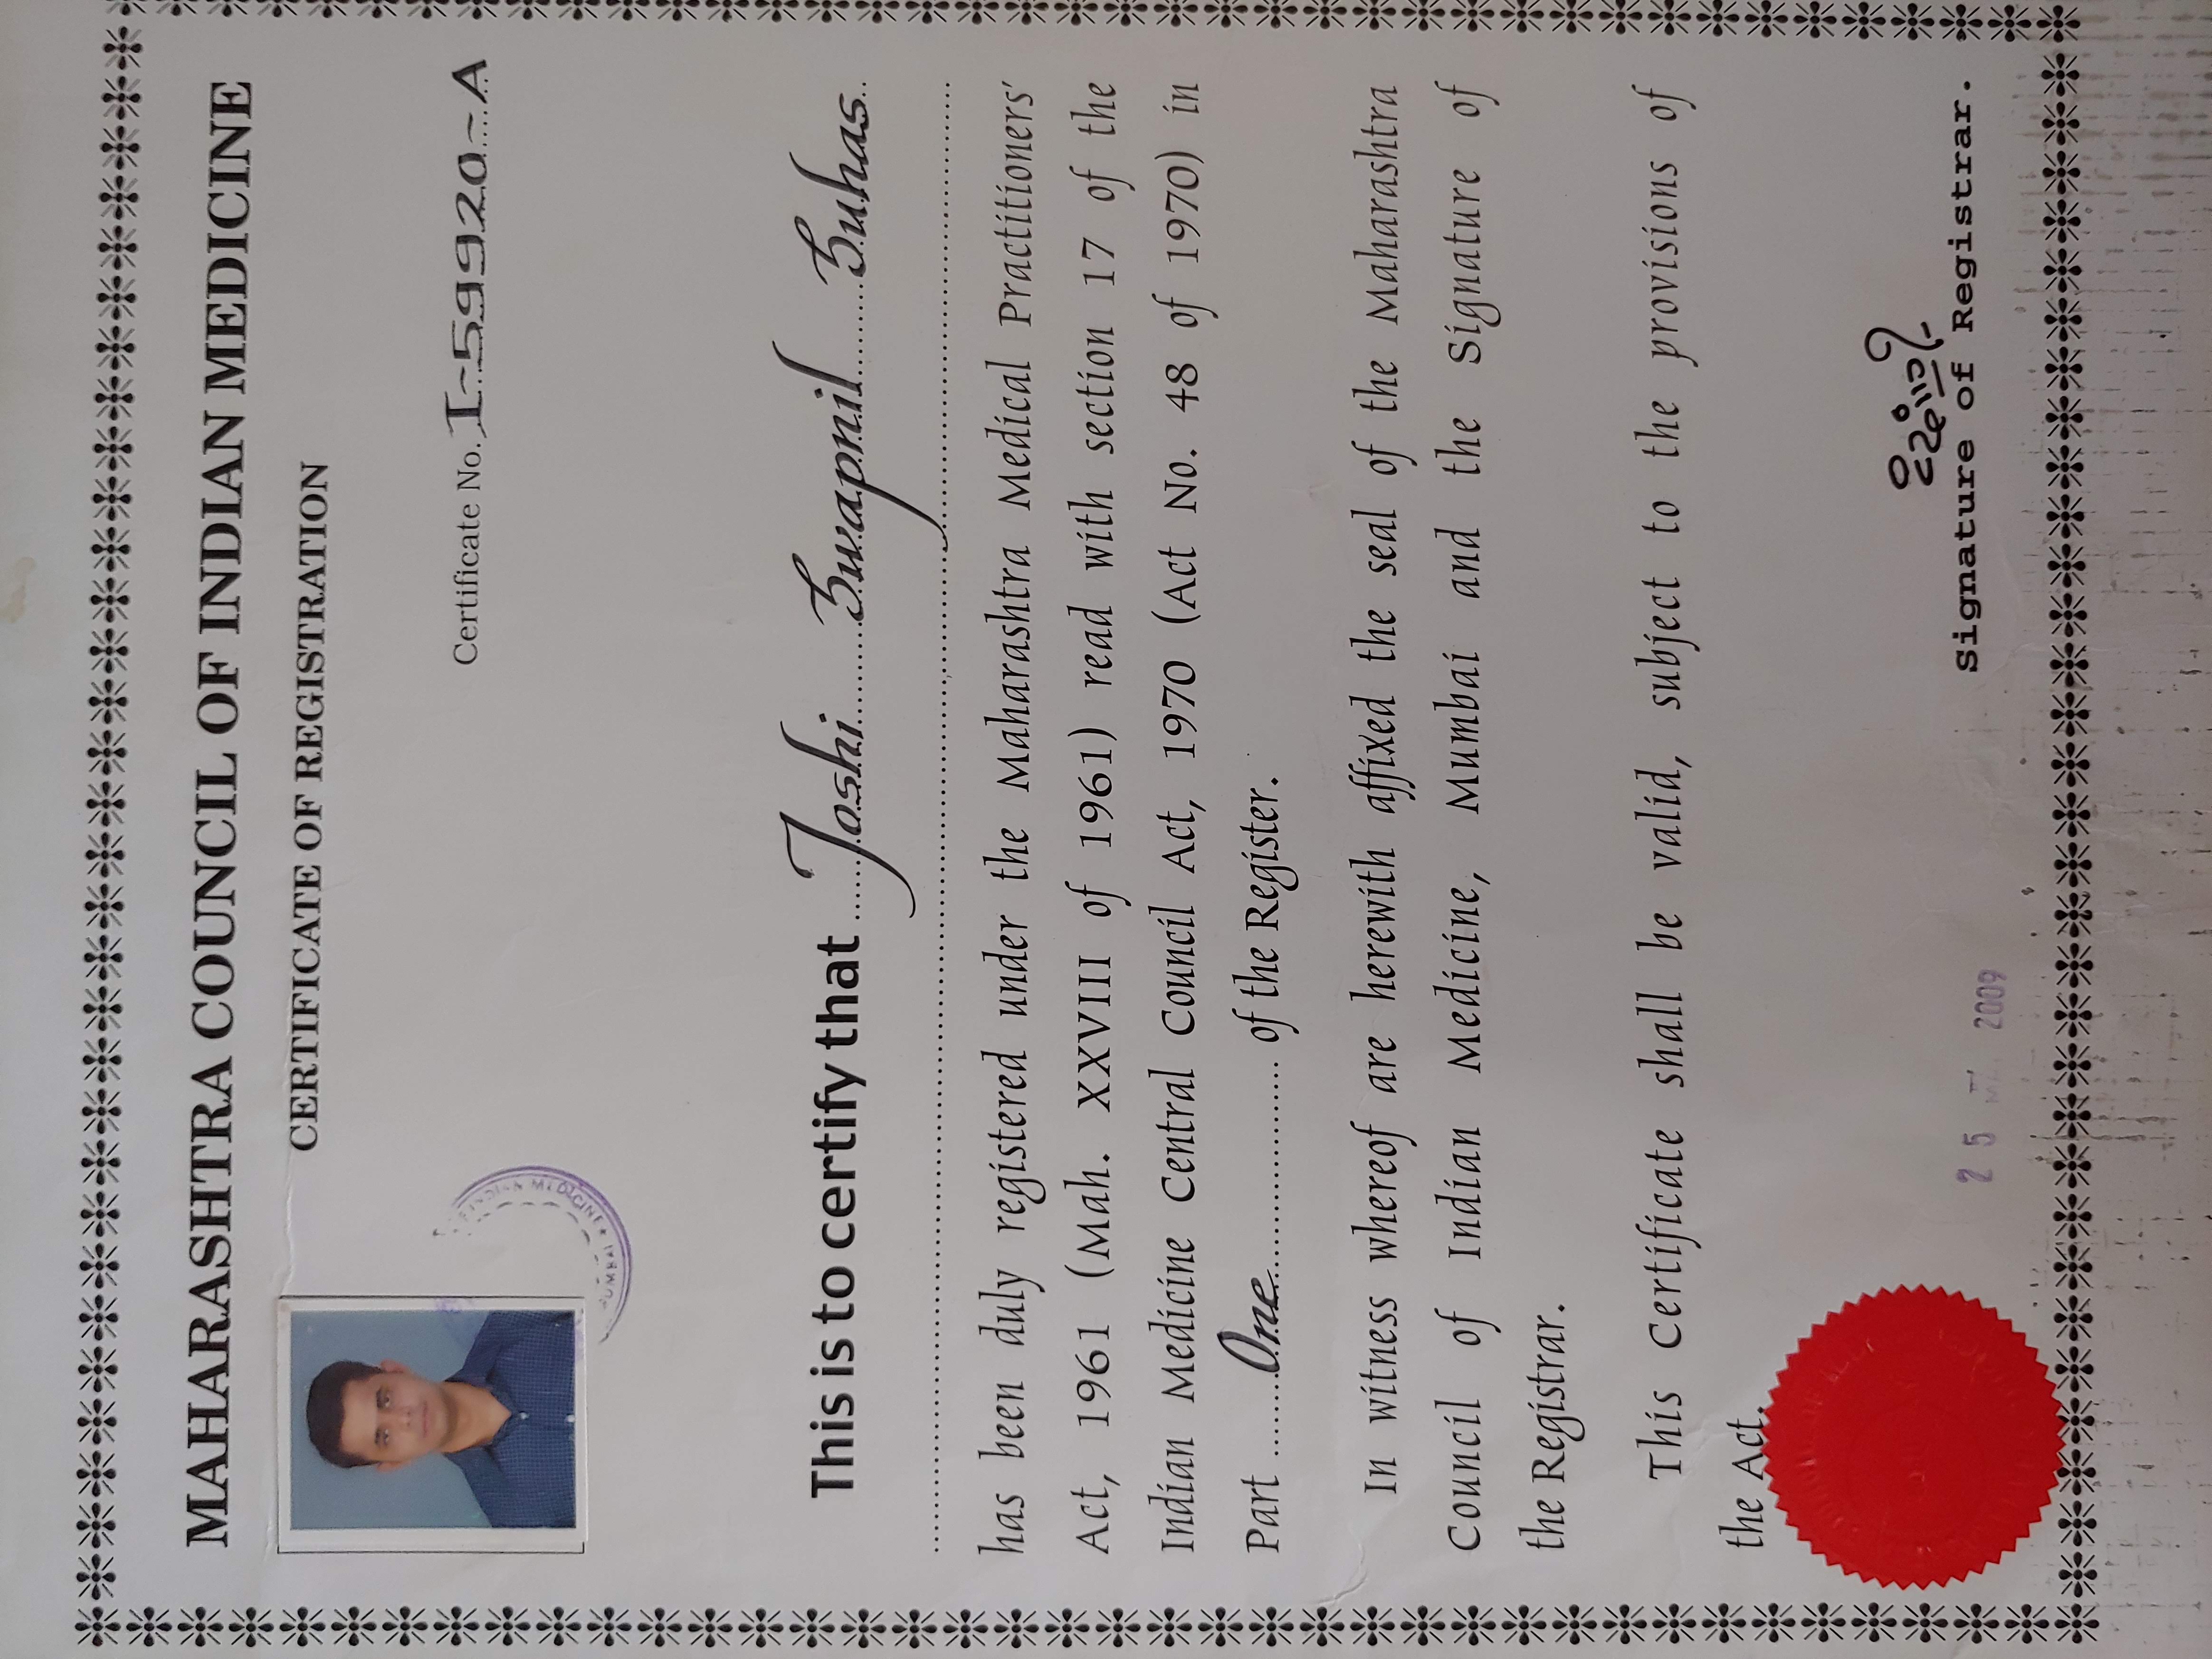 MAHARASHTRA COUNCIL OF INDIAN MEDICINE
CERTIFICATE OF REGISTRATION
Certificate No. I-59920-A
INDIAN MEDICINE
MUMBAI
This is to certify that Joshi Swapnil Suhas
has been duly registered under the Maharashtra Medical Practitioners'
Act, 1961 (Mah. XXVIII of 1961) read with section 17 of the
Indian Medicine Central Council Act, 1970 (Act No. 48 of 1970) in
Part One of the Register.
In witness whereof are herewith affixed the seal of the Maharashtra
Council of Indian Medicine, Mumbai and the Signature of
the Registrar.
This Certificate shall be valid, subject to the provisions of
the Act.
25 2009
Signature of Registrar.